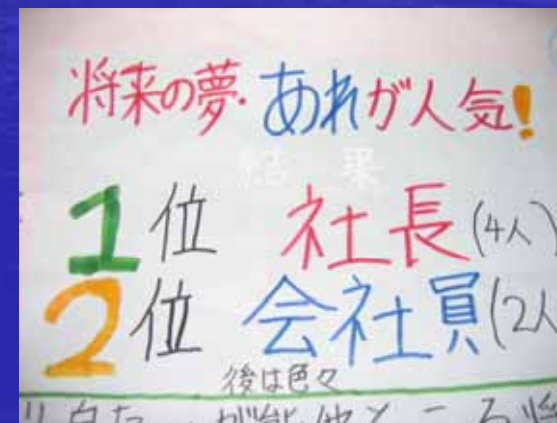 将来の夢・あれが人気!
結果
1位 社長(4人)
2位 会社員(2人
後は色々